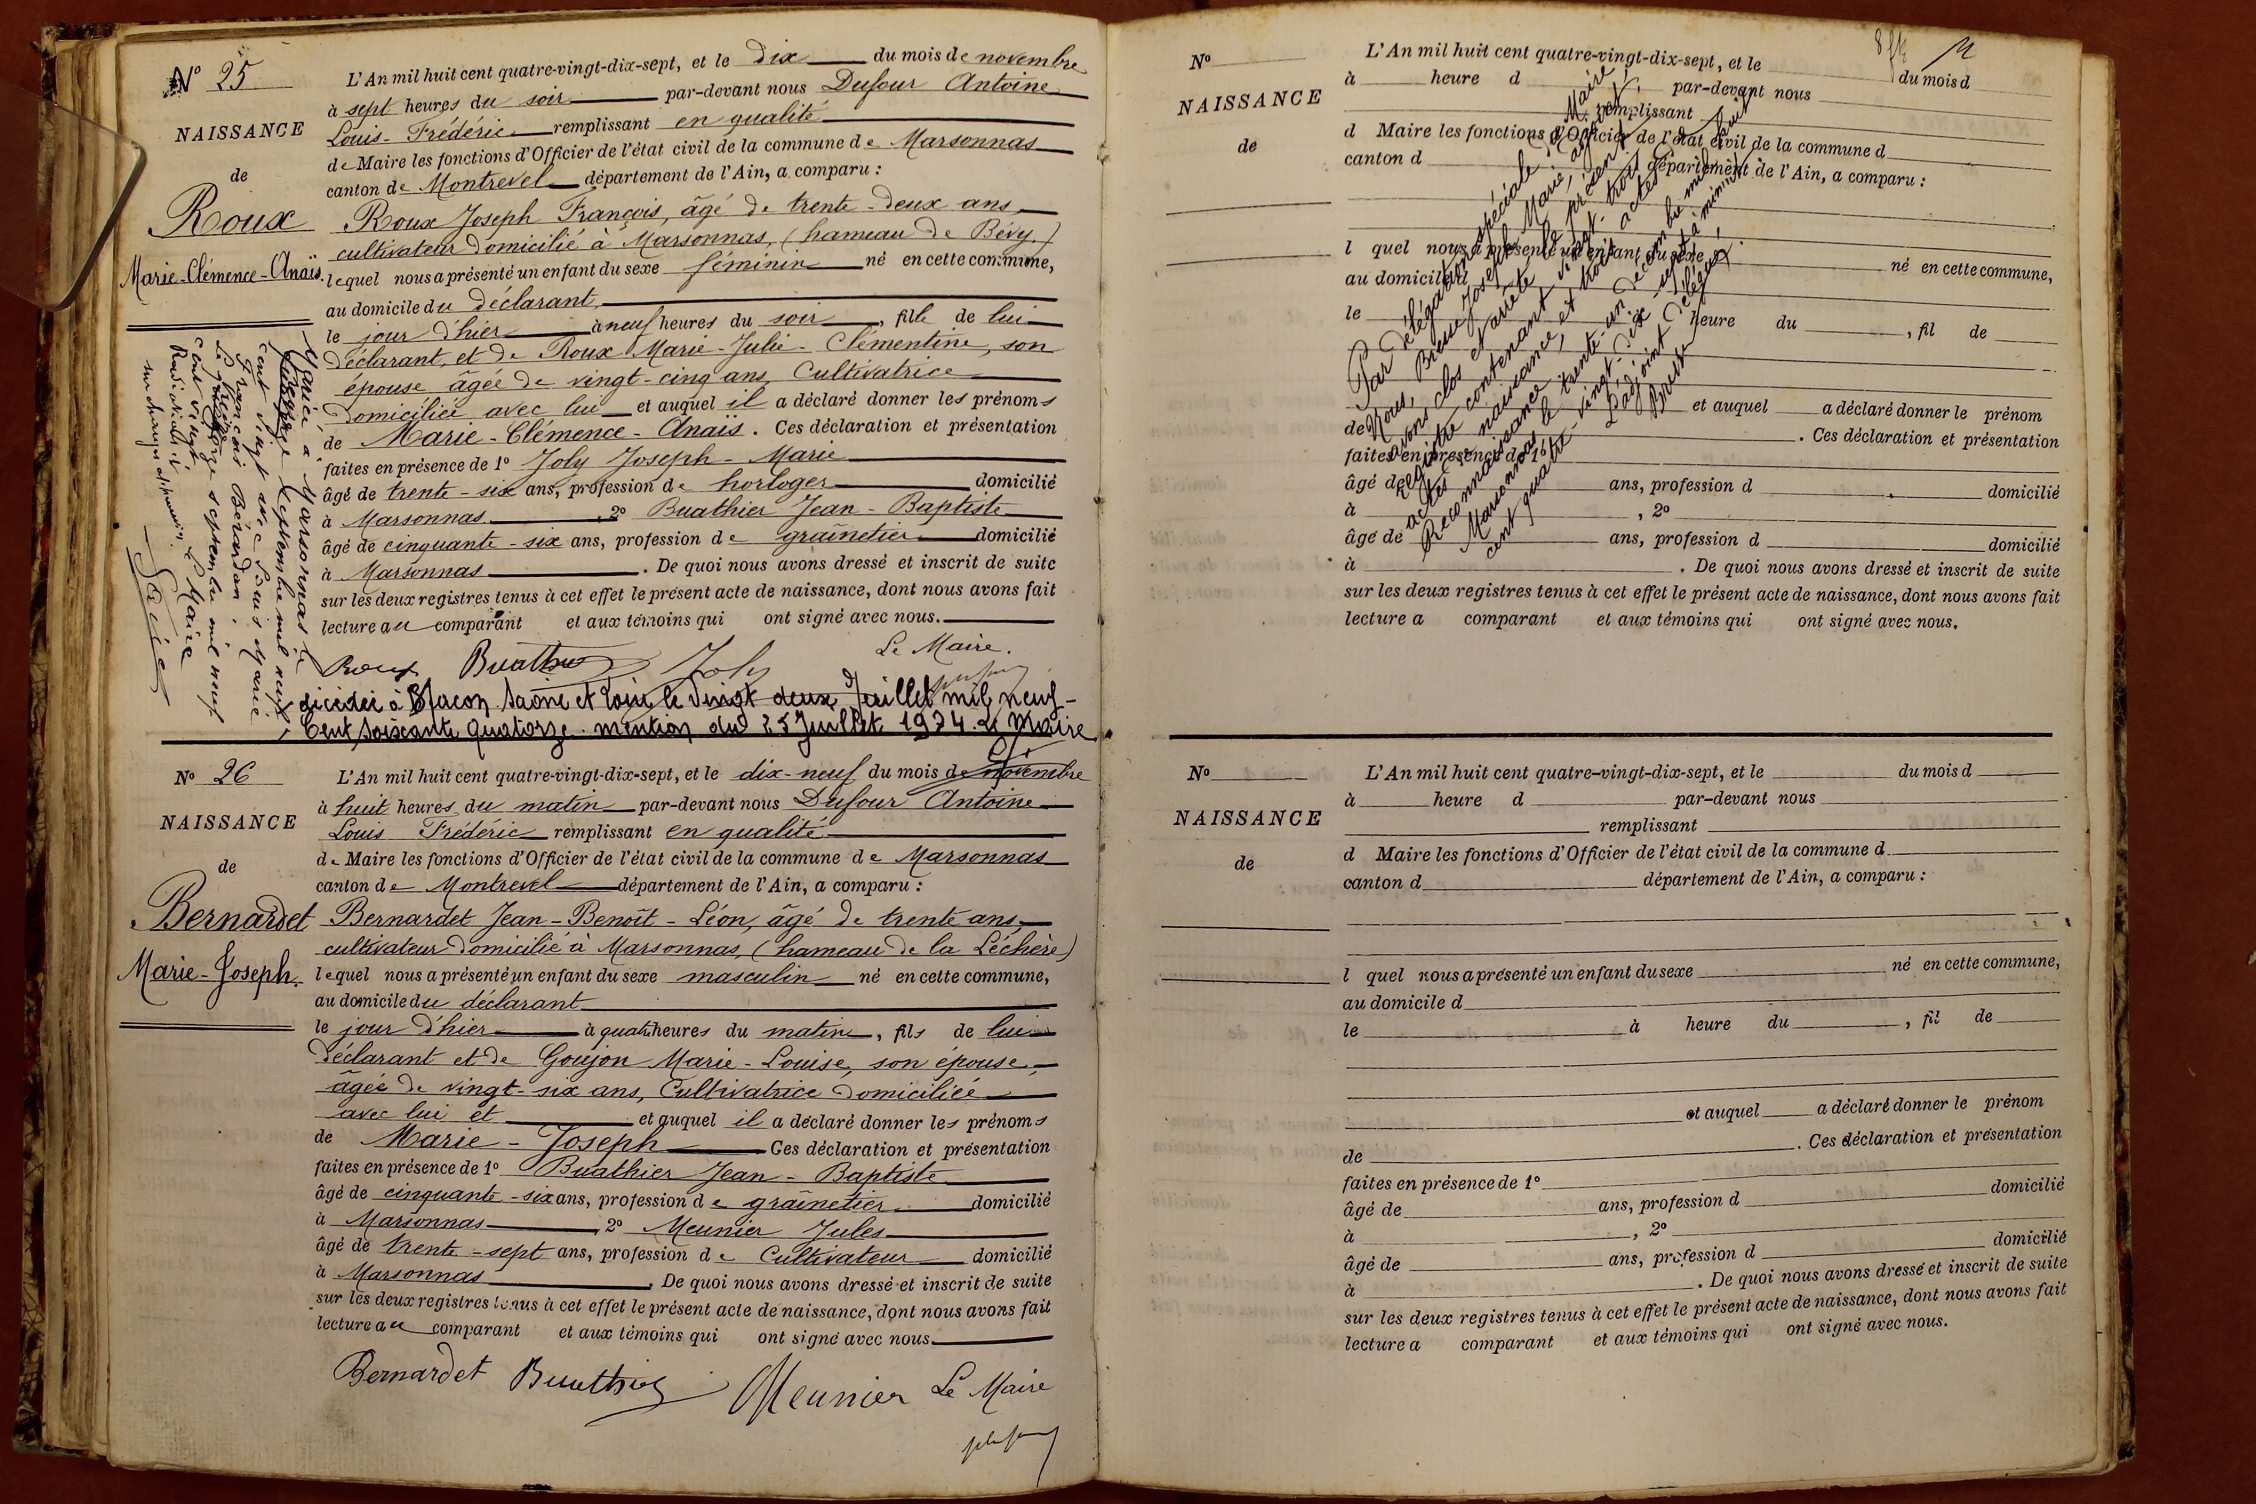 N° 25
NAISSANCE
de
Roux
Marie-Clémence-Anaïs.
L'An mil huit cent quatre-vingt-dix-sept, et le dix du mois de novembre
à sept heures du soir par-devant nous Dufour Antoine
Louis-Frédéric remplissant en qualité
de Maire les fonctions d'Officier de l'état civil de la commune de Marsonnas
canton de Montrevel département de l'Ain, a comparu :
Roux Joseph François, âgé de trente-deux ans,
cultivateur domicilié à Marsonnas, (hameau de Bévy.)
lequel nous a présenté un enfant du sexe féminin né en cette commune,
au domicile du déclarant
le jour d'hier à neuf heures du soir, fille de lui
déclarant, et de Roux Marie-Julie-Clémentine, son
épouse âgée de vingt-cinq ans, Cultivatrice
domiciliée avec lui et auquel il a déclaré donner les prénoms
de Marie-Clémence-Anaïs. Ces déclaration et présentation
faites en présence de 1° Joly Joseph-Marie
âgé de trente-six ans, profession de horloger domicilié
à Marsonnas, 2° Buathier Jean-Baptiste
âgé de cinquante-six ans, profession de grainetier domicilié
à Marsonnas. De quoi nous avons dressé et inscrit de suite
sur les deux registres tenus à cet effet le présent acte de naissance, dont nous avons fait
lecture au comparant et aux témoins qui ont signé avec nous.
Le Maire.
Roux Buathier Joly
Marié à Marsonnas le
septembre mil neuf
cent vingt avec Louis Marie
François Bérardan.
Le septembre mil neuf
cent vingt.
Le Maire
décédée à Macon Saône et Loire le Vingt deux Juillet mil neuf-
Cent soixante quatorze. mention du 25 Juillet 1974. Le Maire
N° 26
NAISSANCE
de
Bernardet
Marie-Joseph.
L'An mil huit cent quatre-vingt-dix-sept, et le dix-neuf du mois de novembre
à huit heures du matin par-devant nous Dufour Antoine
Louis Frédéric remplissant en qualité
de Maire les fonctions d'Officier de l'état civil de la commune de Marsonnas
canton de Montrevel département de l'Ain, a comparu :
Bernardet Jean-Benoît-Léon, âgé de trente ans,
cultivateur domicilié à Marsonnas, (hameau de la Léchère)
lequel nous a présenté un enfant du sexe masculin né en cette commune,
au domicile du déclarant
le jour d'hier à quatre heures du matin, fils de lui
déclarant et de Goujon Marie-Louise, son épouse,
âgée de vingt-six ans, Cultivatrice domiciliée
avec lui et et auquel il a déclaré donner les prénoms
de Marie-Joseph Ces déclaration et présentation
faites en présence de 1° Buathier Jean-Baptiste
âgé de cinquante-six ans, profession de grainetier domicilié
à Marsonnas 2° Meunier Jules
âgé de trente-sept ans, profession de Cultivateur domicilié
à Marsonnas. De quoi nous avons dressé et inscrit de suite
sur les deux registres tenus à cet effet le présent acte de naissance, dont nous avons fait
lecture au comparant et aux témoins qui ont signé avec nous
Bernardet Buathier Meunier Le Maire
N°
NAISSANCE
de
L'An mil huit cent quatre-vingt-dix-sept, et le du mois d
à heure d par-devant nous
remplissant
d Maire les fonctions d'Officier de l'état civil de la commune d
canton d département de l'Ain, a comparu :
l quel nous a présenté un enfant du sexe né en cette commune,
au domicile d
le à heure du , fil de
et auquel a déclaré donner le prénom
de . Ces déclaration et présentation
faites en présence de 1°
âgé de ans, profession d domicilié
à , 2°
âgé de ans, profession d domicilié
à . De quoi nous avons dressé et inscrit de suite
sur les deux registres tenus à cet effet le présent acte de naissance, dont nous avons fait
lecture a comparant et aux témoins qui ont signé avec nous.
Par délégation spéciale du Maire
Nous, Breux Joseph Marie,
avons clos et arrêté le présent
registre contenant vingt-trois
actes de naissance, et trois actes de
Reconnaissance
Marsonnas le trente-un décembre mil huit
cent quatre-vingt-dix-sept à minuit.
L'adjoint délégué,
N°
NAISSANCE
de
L'An mil huit cent quatre-vingt-dix-sept, et le du mois d
à heure d par-devant nous
remplissant
d Maire les fonctions d'Officier de l'état civil de la commune d
canton d département de l'Ain, a comparu :
l quel nous a présenté un enfant du sexe né en cette commune,
au domicile d
le à heure du , fil de
et auquel a déclaré donner le prénom
de . Ces déclaration et présentation
faites en présence de 1°
âgé de ans, profession d domicilié
à , 2°
âgé de ans, profession d domicilié
à . De quoi nous avons dressé et inscrit de suite
sur les deux registres tenus à cet effet le présent acte de naissance, dont nous avons fait
lecture a comparant et aux témoins qui ont signé avec nous.